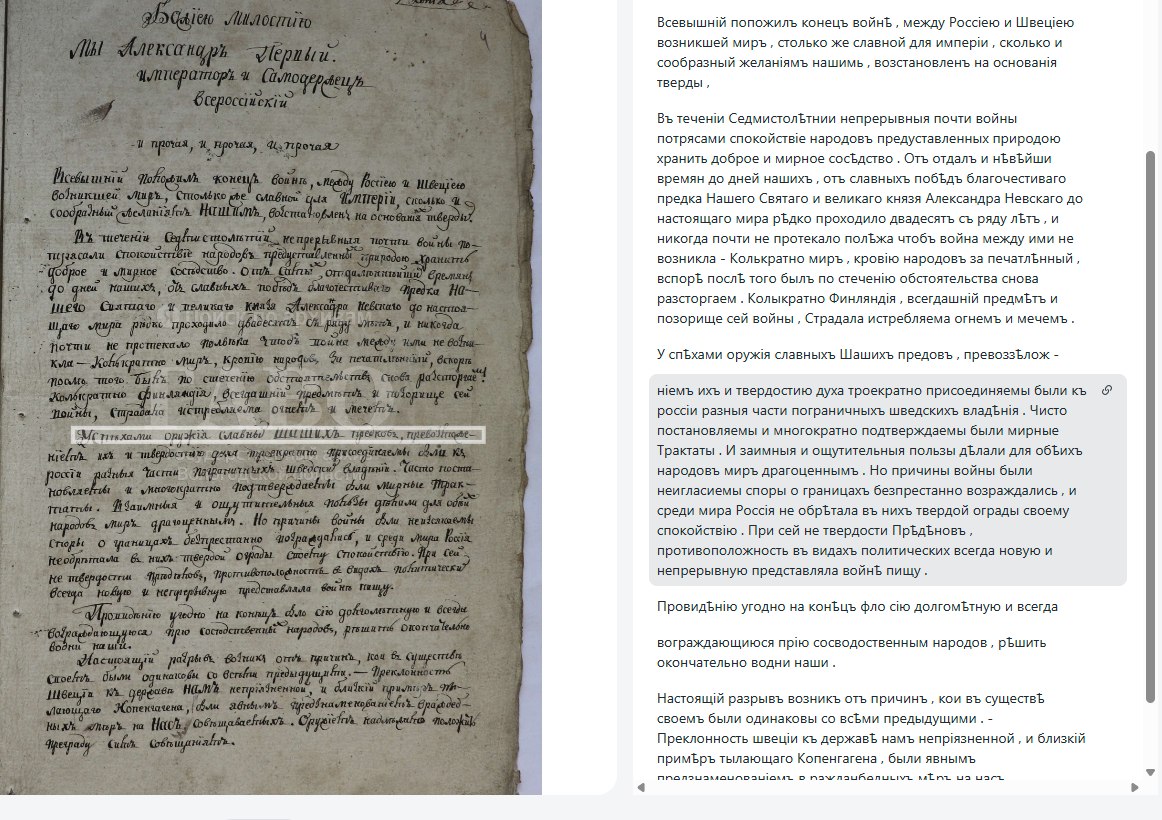 Божіею милостію
Мы Александръ Первый.
императоръ и Самодержецъ
всероссійскій
и прочая, и прочая, и прочая
Всевышній положилъ конецъ войнѣ, между Россіею и Швеціею
возникшей миръ, столько же славной для Имперіи, сколько и
сообразный желаніямъ НАШИМЪ, возстановленъ на основанія тверды.
Въ теченіи Седмистолѣтній непрерывныя почти войны по-
трясали спокойствіе народовъ предуставленныхъ природою хранить
доброе и мирное сосѣдство. Отъ
до дней нашихъ, отъ славныхъ побѣдъ благочестиваго предка На-
шего Святаго и великаго князя Александра Невскаго до настоя-
щаго мира рѣдко проходило двадесять съ ряду лѣтъ, и никогда
почти не протекало полвѣка чтобъ война между ими не возни-
кла — Колькратно миръ, кровію народовъ запечатлѣнный, вскорѣ
послѣ того былъ по стеченію обстоятельствъ снова разторгаемъ!
Колькратно Финляндія, всегдашній предмѣтъ и позорище сей
войны, Страдала истребляема огнемъ и мечемъ.
Успѣхами оружія славныхъ ШАШИХЪ предковъ, превозможе-
ніемъ ихъ и твердостію духа троекратно присоединяемы были къ
россіи разныя части пограничныхъ шведскихъ владѣній. Чисто поста-
новляемы и многократно подтверждаемы были мирные Трак-
таты. Взаимныя и ощутительныя пользы дѣлали для обѣихъ
народовъ миръ драгоценнымъ. Но причины войны были неизсякаемы
споры о границахъ безпрестанно возраждались, и среди мира Россія
не обрѣтала въ нихъ твердой ограды своему спокойствію. При сей
не твердости предѣловъ, противоположность въ видахъ политическихъ
всегда новую и непрерывную представляла войнѣ пищу.
Провидѣнію угодно на конецъ было сію долголѣтную и всегда
возраждающуюся прю сосѣдственныхъ народовъ, рѣшить окончательно
водни наши.
Настоящій разрывъ возникъ отъ причинъ, кои въ существѣ
своемъ были одинаковы со всѣми предыдущими. — Преклонность
Швеціи къ державѣ НАМЪ непріязненной, и близкій примѣръ пы-
лающаго Копенгагена, были явнымъ предзнаменованіемъ враждеб-
ныхъ мѣръ на НАСЪ совѣщаваемыхъ. Оружіемъ надлѣжало положить
преграду симъ совѣщаніямъ.
Всевышній попожилъ конец войнѣ , между Россіею и Швеціею
возникшей миръ , столько же славной для імперіи , сколько и
сообразный желаніямъ нашимь , возстановленъ на основанія
тверды ,
Въ теченіи Седмистолѣтнии непрерывныя почти войны
потрясами спокойствіе народовъ предуставленных природою
хранить доброе и мирное сосѣдство . Отъ отдалъ и нѣвѣйши
времян до дней нашихъ , отъ славныхъ побѣдъ благочестиваго
предка Нашего Святаго и великаго князя Александра Невскаго до
настоящаго мира рѣдко проходило двадесятъ съ ряду лѣтъ , и
никогда почти не протекало полѣжа чтобъ война между ими не
возникла - Колькратно миръ , кровію народовъ за печатлѣнный ,
вспорѣ послѣ того былъ по стеченію обстоятельства снова
разсторгаем . Колыкратно Финляндія , всегдашній предмѣтъ и
позорище сей войны , Страдала истребляема огнемъ и мечемъ .
У спѣхами оружія славныхъ Шашихъ предовъ , превоззѣлож -
ніемъ ихъ и твердостию духа троекратно присоединяемы были къ
россіи разныя части пограничныхъ шведскихъ владѣнія . Чисто
постановляемы и многократно подтверждаемы были мирные
Трактаты . И заимныя и ощутительныя пользы дѣлали для обѣихъ
народовъ миръ драгоценнымъ . Но причины войны были
неигласиемы споры о границахъ безпрестанно возраждались , и
среди мира Россія не обрѣтала въ нихъ твердой ограды своему
спокойствію . При сей не твердости Прѣдѣновъ ,
противоположность въ видахъ политическихъ всегда новую и
непрерывную представляла войнѣ пищу .
Провидѣнію угодно на конѣцъ фло сію долгомѣтную и всегда
вограждающиюся прію сосводоственным народов , рѣшить
окончательно водни наши .
Настоящій разрывъ возникъ отъ причинъ , кои въ существѣ
своемъ были одинаковы со всѣми предыдущими . -
Преклонность швеціи къ державѣ намъ непріязненной , и близкій
примѣръ тылающаго Копенгагена , были явнымъ
предзнаменованіемъ в ражданбедныхъ мѣръ на насъ